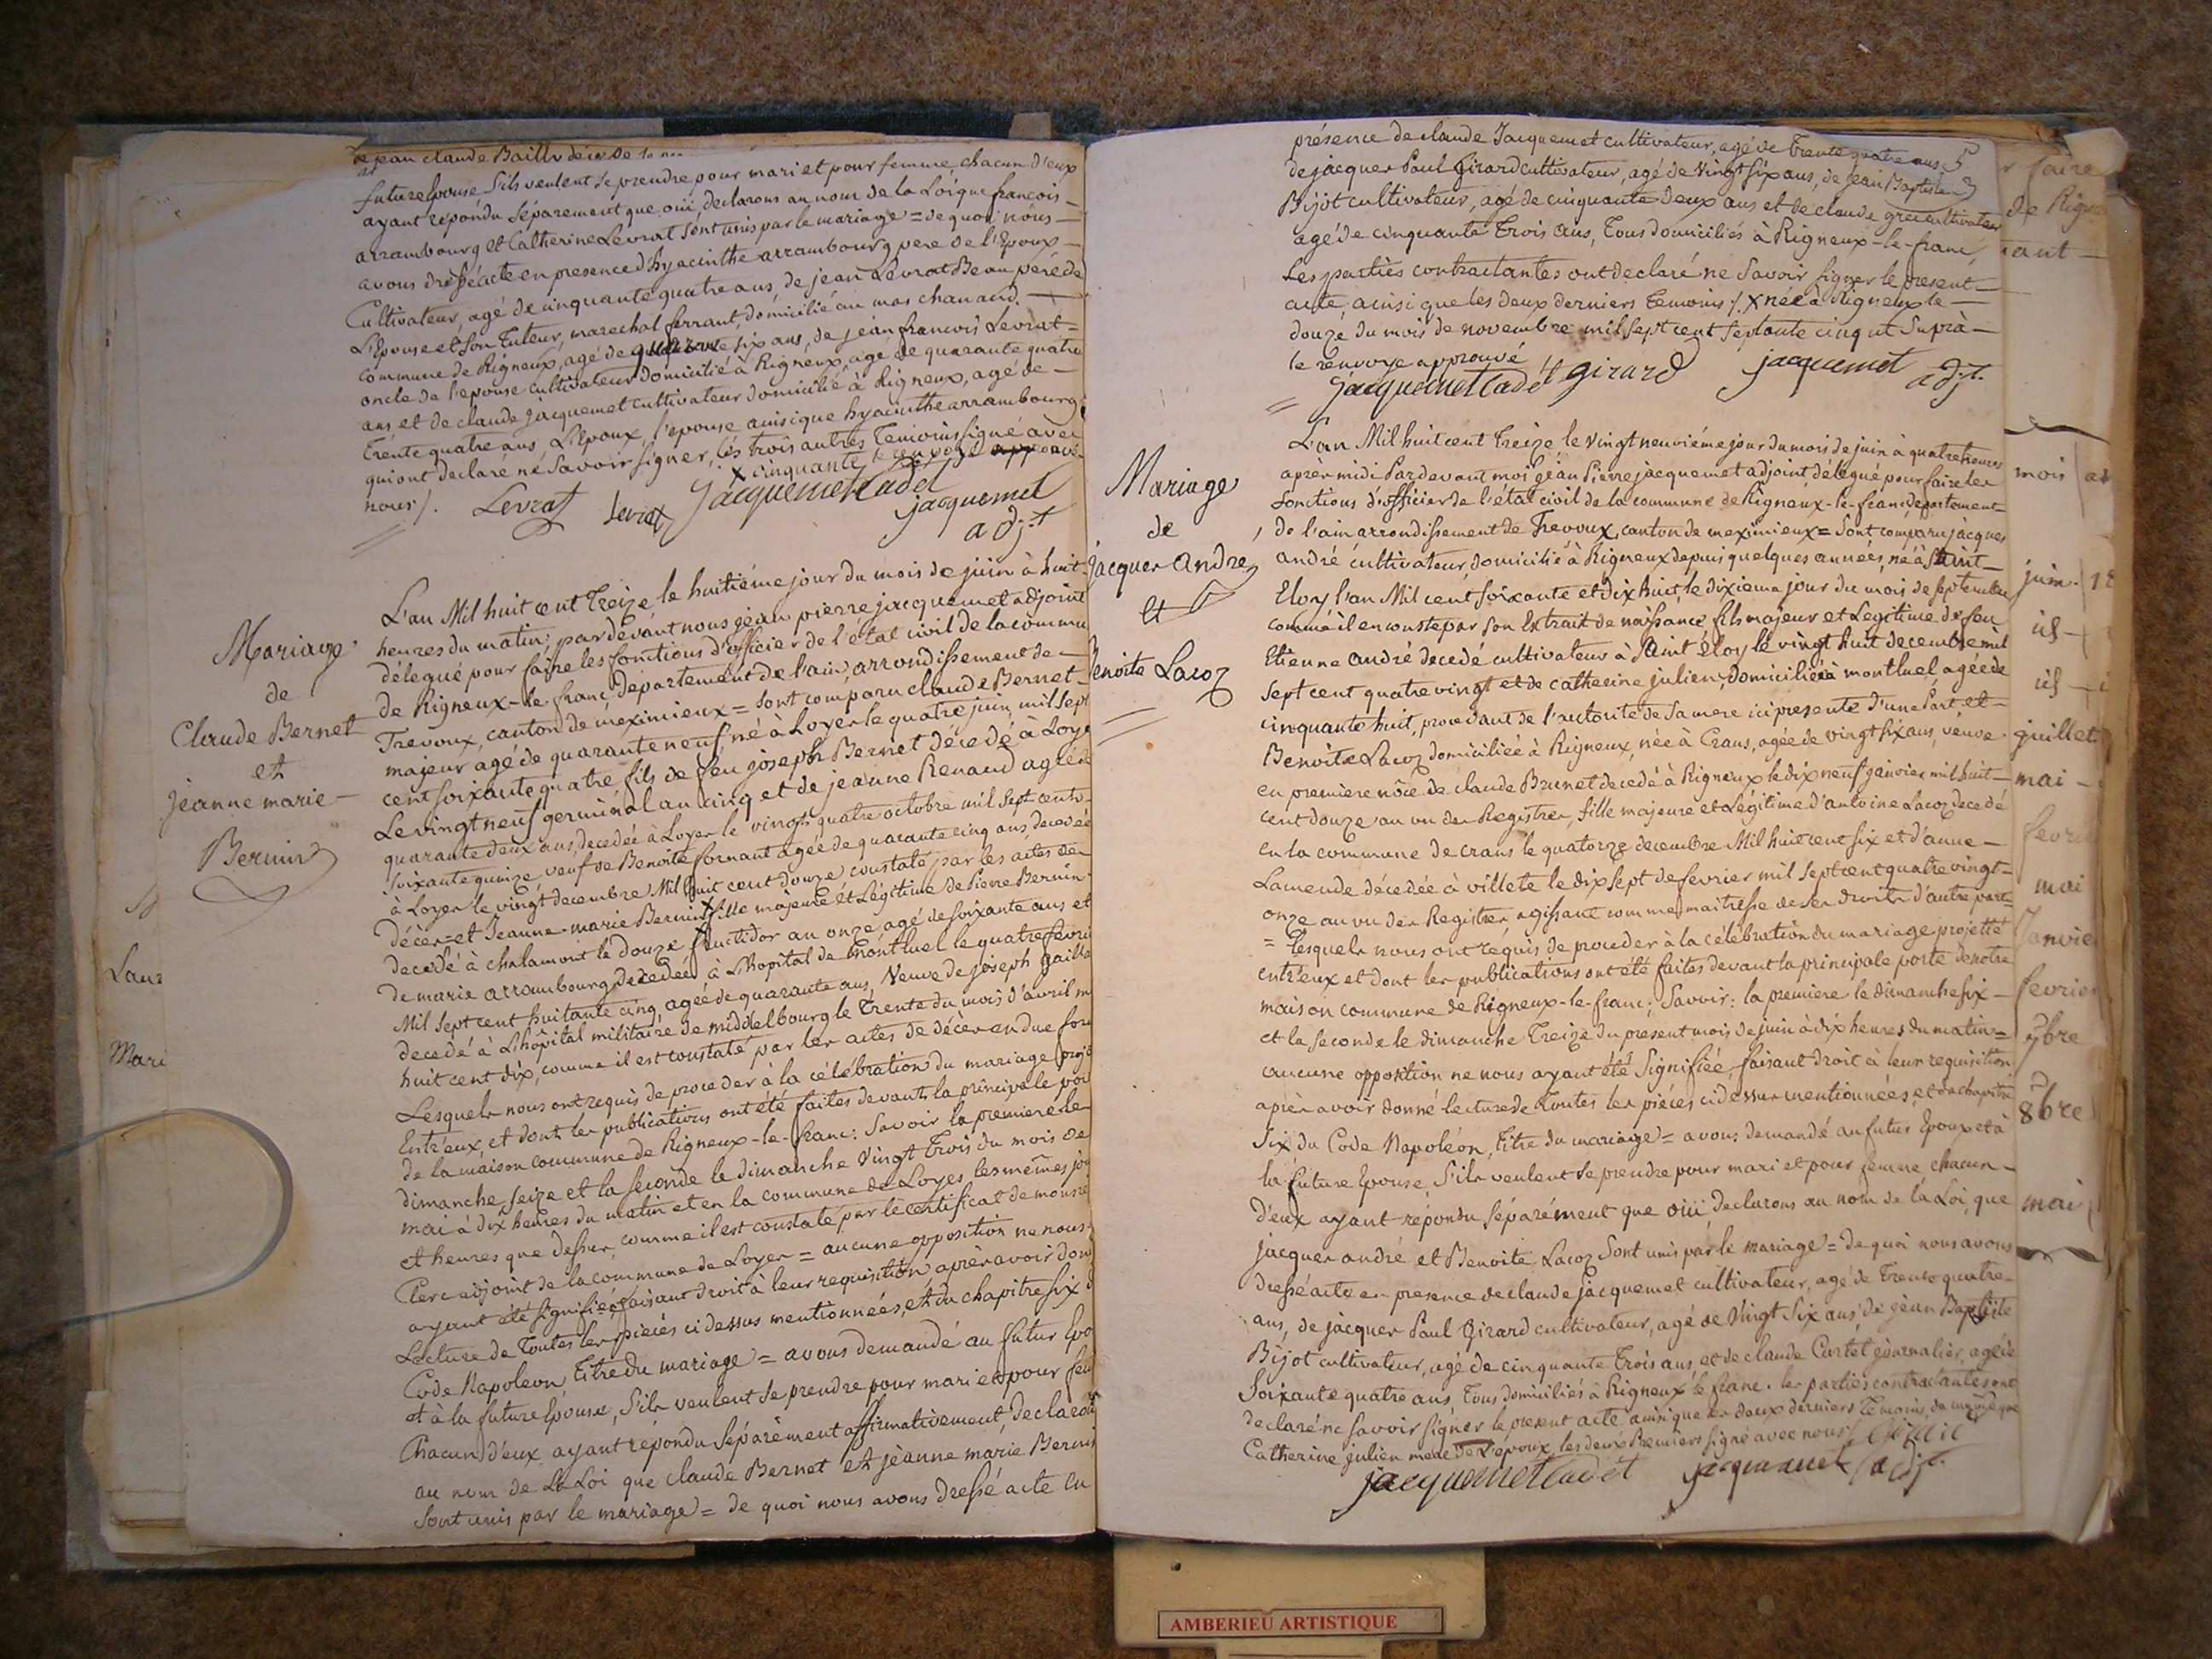 de jean claude Bailly décédé
future Epouse s'ils veulent se prendre pour mari et pour femme chacun d'eux
ayant répondu séparement que oui, declarons au nom de la Loi que francois
arrambourg et Catherine Levrat sont unis par le mariage = de quoi nous
avons dressé acte en presence d'hyacinthe arrambourg pere de l'Epoux
Cultivateur, agé de cinquante quatre ans, de jean Levrat Beau pere de
L'Epouse et son Tuteur, marechal ferrant, domicilié au mas chanaud
commune de Rigneux, agé de six ans, de jean francois Levrat =
oncle de l'epouse cultivateur domicilié à Rigneux, agé de quarante quatre
ans et de claude jacquemet cultivateur domicilié à Rigneux, agé de
Trente quatre ans, L'Epoux, l'epouse ainsi que hyacinthe arrambourg
qui ont declaré ne savoir signer, les trois autres Temoins signé avec
nous /. x cinquante le renvoyé approuvé
Levrat Levrat jacquemet cadet
jacquemet
adjt
Mariage
de
Claude Bernet
et
jeanne marie
Bernin
L'an Mil huit cent Treize le huitiéme jour du mois de juin à huit
heures du matin; par devant nous jean pierre jacquemet adjoint
délegué pour faire les fonctions d'officier de l'état civil de la commu
de Rigneux-le-franc département de l'ain, arrondissement de
Trevoux, canton de meximieux = sont comparu claude Bernet
majeur agé de quarante neuf, né à Loyer le quatre juin mil sept
cent soixante quatre fils de feu joseph Bernet décedé à Loye
Le vingt neuf germinal an cinq et de jeanne Renaud agée de
quarante deux ans, decedée à Loyer le vingt quatre octobre mil sept cents
soixante quinze veuf de Benoite fornant agée de quarante cinq ans, decedée
à Loyer le vingt decembre Mil huit cent douze constaté par les actes de
décèr = et Jeanne-marie Bernin x fille majeure et Légitime de Pierre Bernin
decedé à chalamont le douze fructidor an onze agé de soixante ans et
de marie arrambourg decedée à L'hopital de Montluel le quatre fevri
Mil sept cent huitante cinq, agée de quarante ans, Veuve de joseph gailla
decedé à L'hôpital militaire de middelbourg le Trente du mois d'avril m
huit cent dix, comme il est constaté par les actes de décèr en due for
Lesquels nous ont requis de proceder à la célébration du mariage proje
Entr'eux, et dont les publications ont été faites devant la principale por
de la maison commune de Rigneux-le-franc: Savoir la premiere le
dimanche seize et la seconde le dimanche Vingt Trois du mois de
mai à dix heures du matin et en la commune de Loyes les mêmes jou
et heures que dessus, comme il est constaté par le certificat de monsie
Clerc adjoint de la commune de Loyer = aucune opposition ne nous
ayant été signifiée, faisant droit à leur requisition après avoir don
Lecture de Toutes les piéces ci dessus mentionnées, et du chapitre six d
Code Napoleon, Titre du mariage = avons demandé au futur Epo
et à la future Epouse, S'ils veulent se prendre pour mari et pour fem
Chacun d'eux ayant répondu séparément affirmativement, declarons
au nom de La Loi que claude Bernet et jeanne marie Bernin
sont unis par le mariage = de quoi nous avons dressé acte en
Laur
Mari
présence de claude Jacquemet cultivateur, agé de Trente quatre ans,
de jacquer Paul Girard cultivateur, agé de Vingt six ans, de jean Baptiste
Bijot cultivateur, agé de cinquante deux ans et de claude cultivateur
agé de cinquante Trois ans, Tous domiciliés à Rigneux-le-franc
Les parties contractantes ont declaré ne Savoir signer le present
acte, ainsi que les deux derniers Temoins /. x née à Rigneux le
douze du mois de novembre mil sept cent septante cinq ut suprà
le renvoye approuvé
jacquemet cadet girard jacquemet adjt.
Mariage
de
jacquer andre
et
Benoite Lacoz
L'an Mil huit cent Treize le Vingt neuviéme jour du mois de juin à quatre heures
après midi Par devant moi jean Pierre jacquemet adjoint, délegué pour faire les
fonctions d'officier de l'état civil de la commune de Rigneux-le-franc, departement
de l'ain arrondissement de Trevoux, canton de meximieux = Sont comparu jacques
andré cultivateur, domicilié à Rigneux depuis quelques années, né à Saint
Eloy l'an Mil cent soixante et dix huit, le dixieme jour du mois de septembre
comme il en conste par son Extrait de naissance, fils majeur et Legitime de feu
Etienne andré decedé cultivateur à Saint éloy le vingt huit decembre mil
sept cent quatre vingt et de catherine julien, domiciliée à montluel agée de
cinquante huit, procedant de l'autorité de sa mere ici presente d'une Part, et
Benoite Lacoz domiciliée à Rigneux, née à Crans, agée de vingt six ans, veuve
en premiere nôce de claude Brunet decedé à Rigneux le dix neuf janvier mil huit
cent douze au vu des Registres, fille majeure et Légitime d'antoine Lacoz decedé
en la commune de crans le quatorze decembre Mil huit cent six et d'anne
Lamende décedée à villete le dix sept de fevrier mil sept cent quatre vingt
onze au vu des Registres agissant comme maitresse de ses droits d'autre part =
= Lesquels nous ont requis de proceder à la célébration du mariage projetté
entr'eux et dont les publications ont été faites devant la principale porte de notre
maison commune de Rigneux-le-franc; Savoir: la premiere le dimanche six
et la seconde le dimanche Treize du present mois de juin à dix heures du matin =
aucune opposition ne nous ayant été Signifiée, faisant droit à leur requisition
après avoir donné lecture de Toutes les piéces ci dessus mentionnées, et du chapitre
Six du Code Napoléon, Titre du mariage = avons demandé au futur Epoux et à
la future Epouse, S'ils veulent se prendre pour mari et pour femme chacun
d'eux ayant répondu séparément que oüi Declarons au nom de la Loi, que
jacquer andré et Benoite Lacoz Sont unis par le mariage = de quoi nous avons
dressé acte en presence de claude jacquemet cultivateur, agé de Trente quatre
ans, de jacquer Paul Girard cultivateur, agé de Vingt Six ans, de jean Baptiste
Bijot cultivateur, agé de cinquante Trois ans et de claude Curtet journalier, agé de
Soixante quatre ans, Tous domiciliés à Rigneux le franc. les parties contractantes ont
declaré ne savoir signer le present acte ainsi que les deux derniers Témoins, de même que
Catherine julien mere de L'epoux, les deux Premiers signé avec nous /.
jacquemet cadet jacquemet adjt.
faire
de Rigne
tant
mois
juin
id
id
juillet
mai
fevri
mai
Janvie
fevrier
7bre
8bre
mai
AMBERIEU ARTISTIQUE